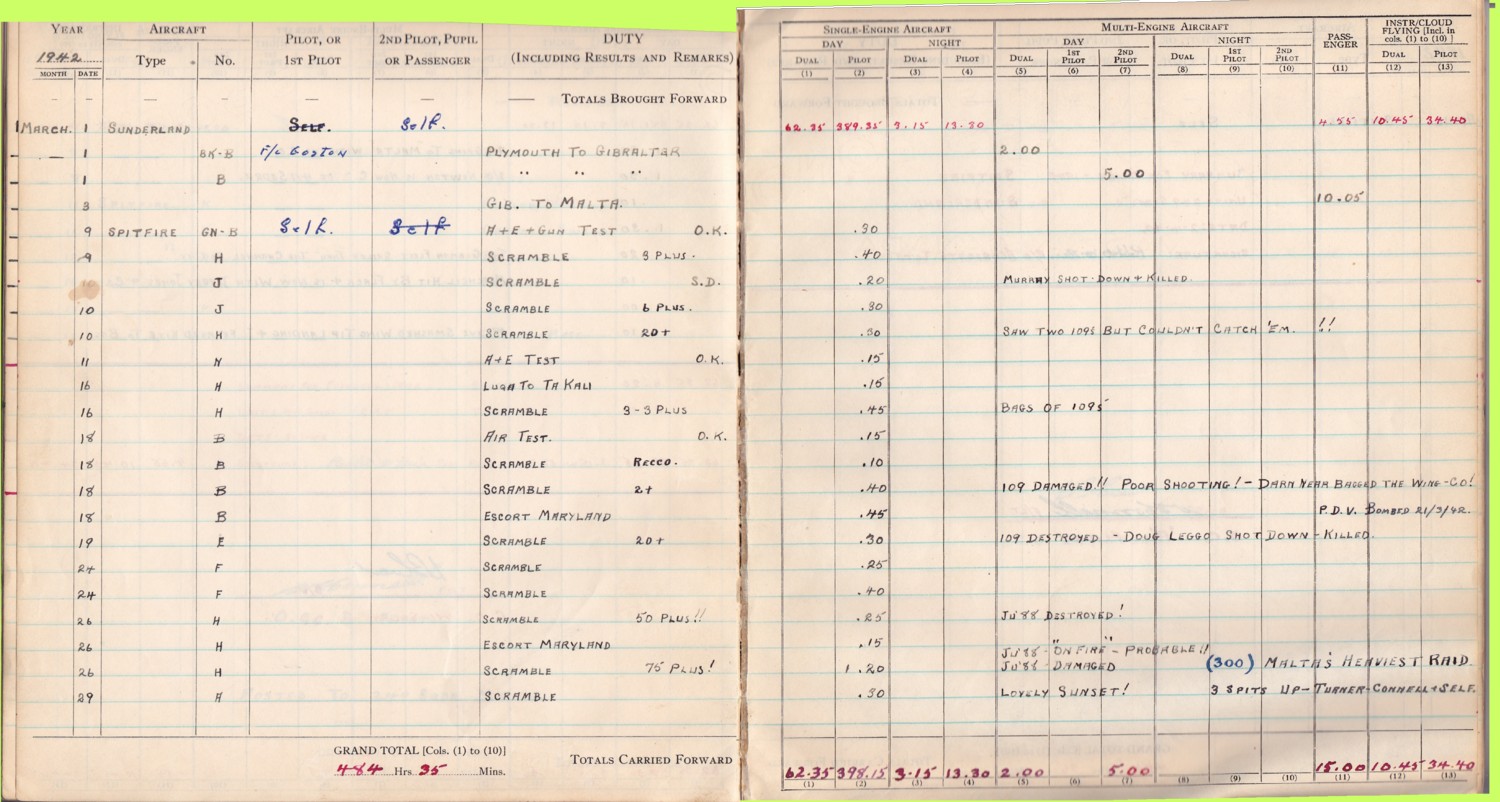 YEAR AIRCRAFT PILOT, OR 1ST PILOT 2ND PILOT, PUPIL OR PASSENGER DUTY (INCLUDING RESULTS AND REMARKS) SINGLE-ENGINE AIRCRAFT MULTI-ENGINE AIRCRAFT PASS-ENGER INSTR/CLOUD FLYING [Incl. in cols. (1) to (10)]
1942 Type No. DAY NIGHT DAY NIGHT
MONTH DATE DUAL PILOT DUAL PILOT DUAL 1ST PILOT 2ND PILOT DUAL 1ST PILOT 2ND PILOT DUAL PILOT
(1) (2) (3) (4) (5) (6) (7) (8) (9) (10) (11) (12) (13)
— — — — — — — TOTALS BROUGHT FORWARD
MARCH. 1 SUNDERLAND SELF. Self. 62.35 389.35 3.15 13.30 4.55 10.45 34.40
— 1 BK-B F/L GOSTON PLYMOUTH TO GIBRALTER 2.00
1 B " " " 5.00
3 GIB. TO MALTA. 10.05
9 SPITFIRE GN-B Self. Self A+E+GUN TEST O.K. .30
9 H SCRAMBLE 3 PLUS. .40
10 J SCRAMBLE S.D. .20 MURRAY SHOT-DOWN + KILLED.
10 J SCRAMBLE 6 PLUS. .30
10 H SCRAMBLE 20+ .30 SAW TWO 109S BUT COULDN'T CATCH 'EM. !!
11 N A+E TEST O.K. .15
16 H LUQA TO TA KALI .15
16 H SCRAMBLE 3-3 PLUS .45 BAGS OF 109S
18 B AIR TEST. O.K. .15
18 B SCRAMBLE RECCO. .10
18 B SCRAMBLE 2+ .40 109 DAMAGED!! POOR SHOOTING! - DARN NEAR BAGGED THE WING-CO!
18 B ESCORT MARYLAND .45 P.D.V. BOMBED 21/3/42.
19 E SCRAMBLE 20+ .30 109 DESTROYED - DOUG LEGGO SHOT DOWN - KILLED.
24 F SCRAMBLE .25
24 F SCRAMBLE .40
26 H SCRAMBLE 50 PLUS!! .25 JU'88 DESTROYED!
26 H ESCORT MARYLAND .15 JU'88 - "ON FIRE" - PROBABLE!!
26 H SCRAMBLE 75 PLUS! 1.20 JU'88 - DAMAGED (300) MALTA'S HEAVIEST RAID.
29 H SCRAMBLE .30 LOVELY SUNSET! 3 SPITS UP - TURNER-CONNELL + SELF.
GRAND TOTAL [Cols. (1) to (10)]
484 Hrs. 35 Mins. TOTALS CARRIED FORWARD 62.35 398.15 3.15 13.30 2.00 5.00 15.00 10.45 34.40
(1) (2) (3) (4) (5) (6) (7) (8) (9) (10) (11) (12) (13)